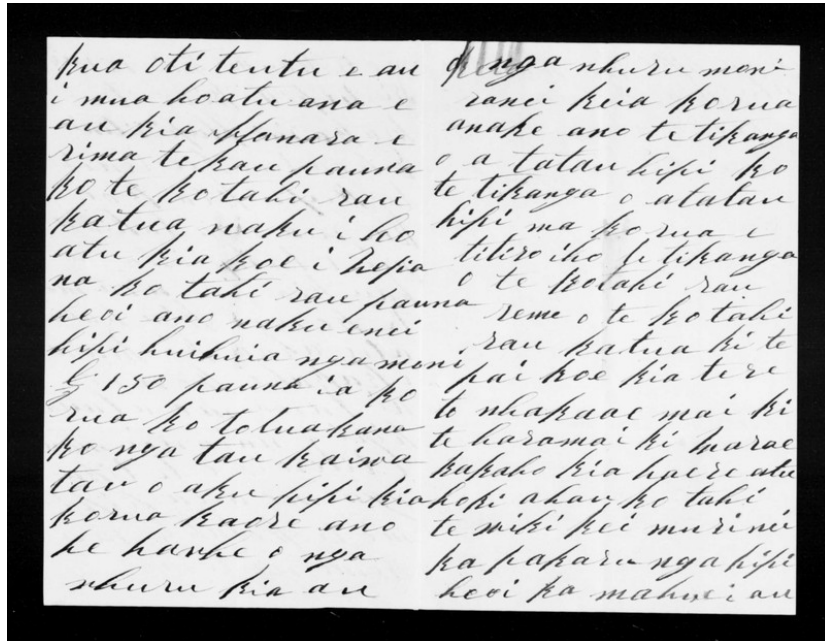 kua oti tentu e au
i mua hoatu ana e
au kia Manara e
rima te kau pauna
ko te kotahi rau
katua naku i ho
atu kia koe i Nepia
na ko tahi rau pauna
heoi ano naku enei
hipi huihuia nga moni
£ 150 pauna ia ko
rua ko to tuakana
ko nga tau kaiwa
tau o aku hipi kia
korua kaore ano
he hawhe o nga
whuru kia au
nga whuru moni
ranei keia korua
anake ano te tikanga
o a tatau hipi ko
te tikanga o a tatau
hipi ma korua e
titiro iho te tikanga
o te kotahi rau
reme o te kotahi
rau katua ki te
pai koe kia tere
to whakaae mai ki
te haramai ki
kakaho kia haere atu
hoki ahau ko tahi
te wiki kei muri nei
ka pakaru nga hipi
heoi ka mahue i au